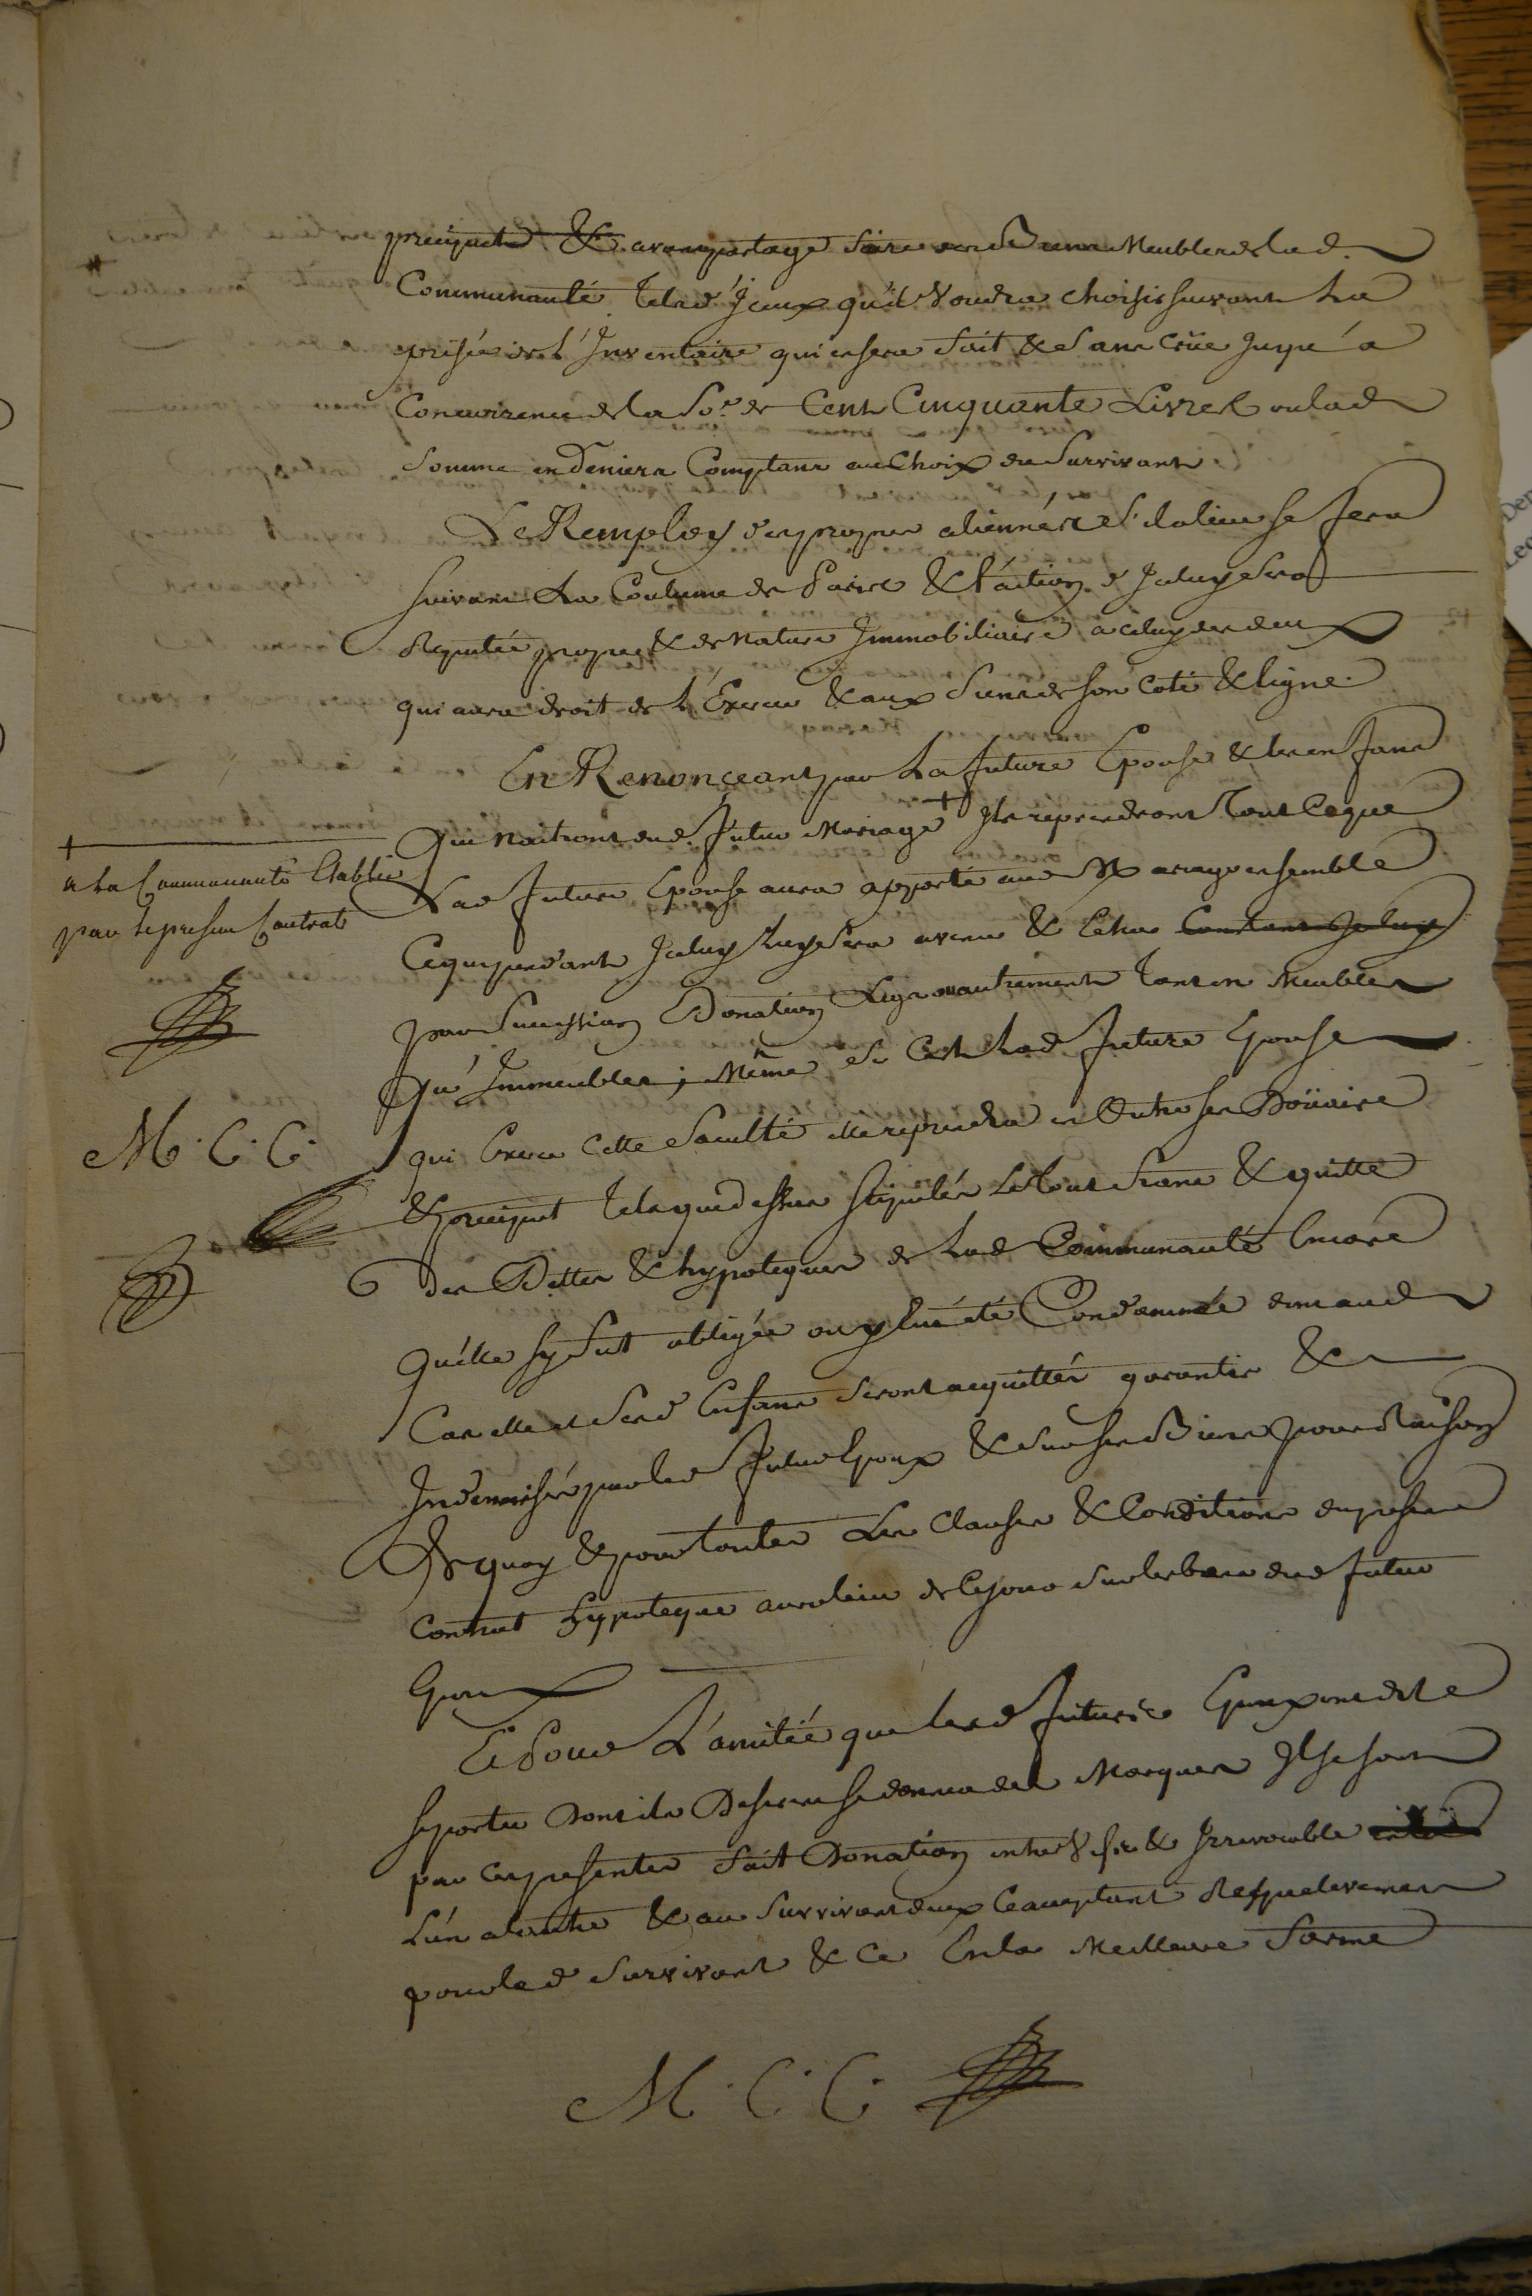 preciput & avant partage faire des Biens Meubles de lad.
Communauté tels d'Iceux qu'il Voudra choisir suivant La
prisée de l'Inventaire qui en sera fait & sans crüe jusqu'a
Concurrence de la So.e de Cent Cinquante Livres ou lad
Somme en Deniers Comptans au Choix du Survivant
Le Remploy des propres alliennés s'il a lieu se fera
suivant La Coutume de Paris & l'action d'Iceluy sera
Reputée propre & de Nature Immobiliaire a celuy des deux
qui aura droit de l'Exercer & aux siens de son coté & ligne.
En Renonceant par La future Epouse & les enfans
Qui Naitront dud. futur Mariage + Ils reprendront Tout Ceque
Lad future Epouse aura apporté aud Mariage ensemble
Cequi pendant Iceluy Luy sera avenu & Echu Constant Iceluy
par Succession Donation Legs ou autrement Tant en Meubles
Qu'Immeubles ; Même si C'est Lad future Epouse
qui Exerce Cette faculté elle reprendra en Outre ses Doüaire
& preciput Tels que dessus stipulés Le tout franc & quitte
des Dettes & hypoteques de Lad Communauté Encore
Qu'elle sy fut obligée ou y Eut été Condamnée
Car elle et sesd Enfans seront acquittés garantis &
Indemnisés par led futur Epoux & sur ses Biens pour Raison
De quoy & pour toutes Les Clauses & Conditions du present
Contrat hypoteque aura lieu de Ce jour sur les biens dud futur
Epoux
Et Pour L'amitié que lesd futurs Epoux ont dit se
se porter Dont ils Desirent se donner des Marques Ils se sont
par ces presentes fait Donation entre Vifs & Irrevocable
L'un a l'autre & au Survivant d'eux Ce acceptant Respectivement
pour led Survivant & Ce En la Meilleure forme
M. C. C.
+
a La Communauté Etablie
par le present Contrat
M. C. C.